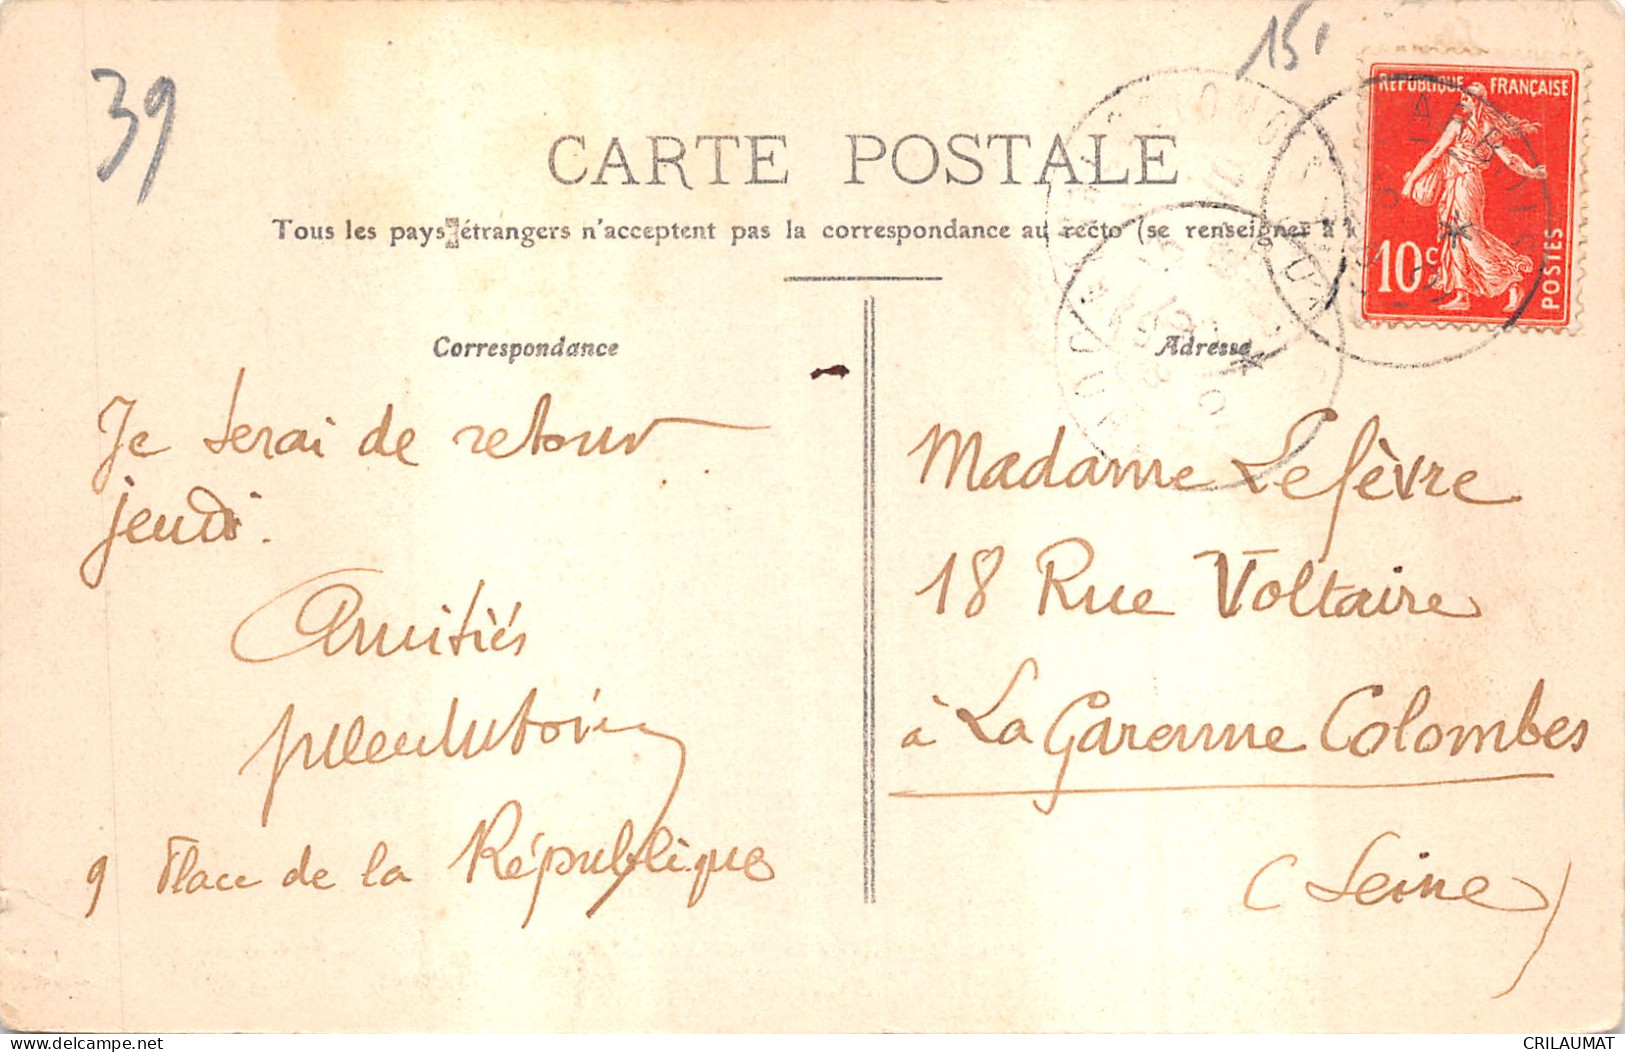 39
15
CARTE POSTALE
Tous les pays étrangers n'acceptent pas la correspondance au recto (se renseigner à
REPUBLIQUE FRANÇAISE
10c
POSTES
Correspondance
Adresse
Je serai de retour
jeudi.
Amitiés
9 Place de la République
Madame Lefèvre
18 Rue Voltaire
à La Garenne Colombes
(Seine)
delcampe.net
CRILAUMAT